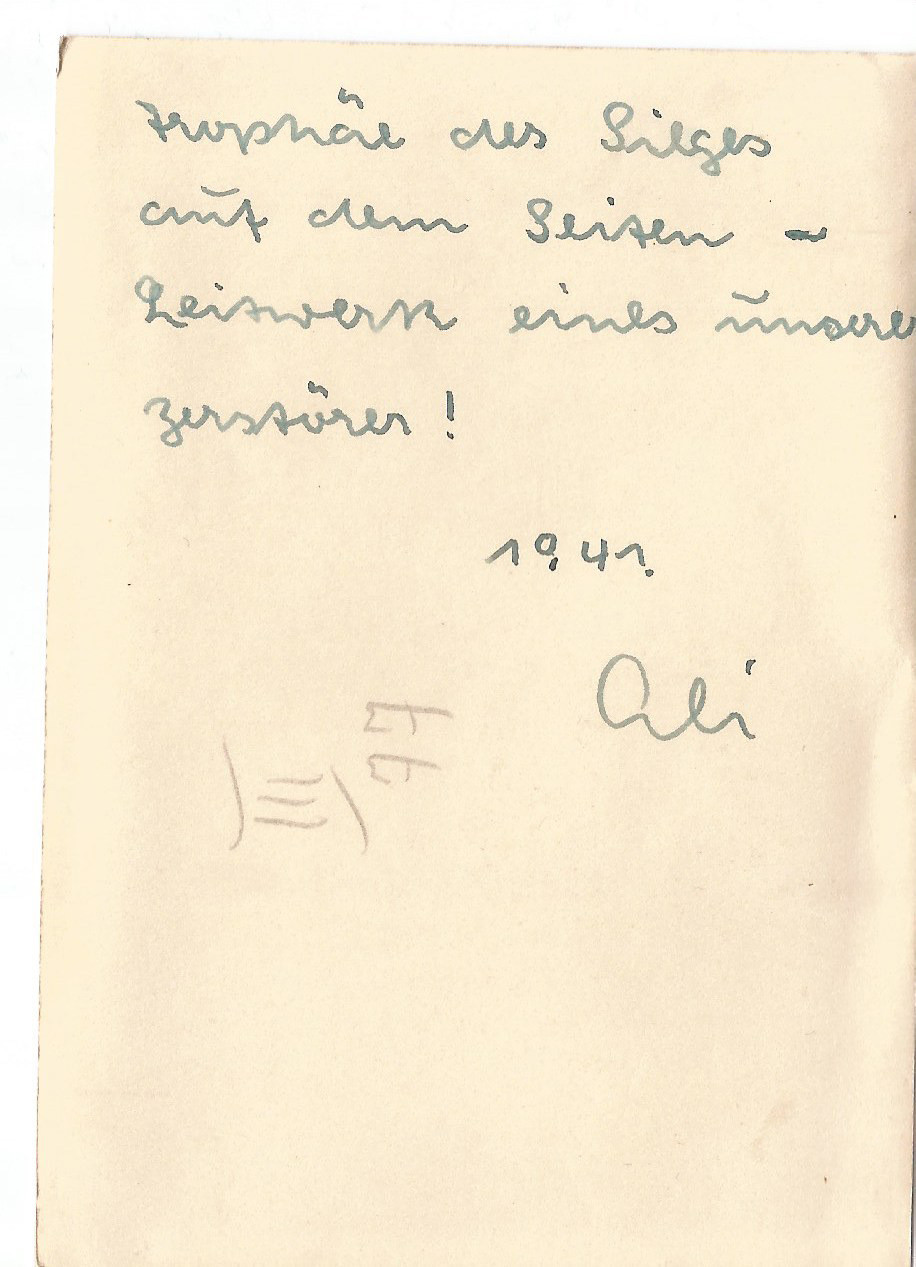 Trophäe des Sieges
auf dem Seiten -
Leitwerk eines unserer
Zerstörer!
1941.
Abi